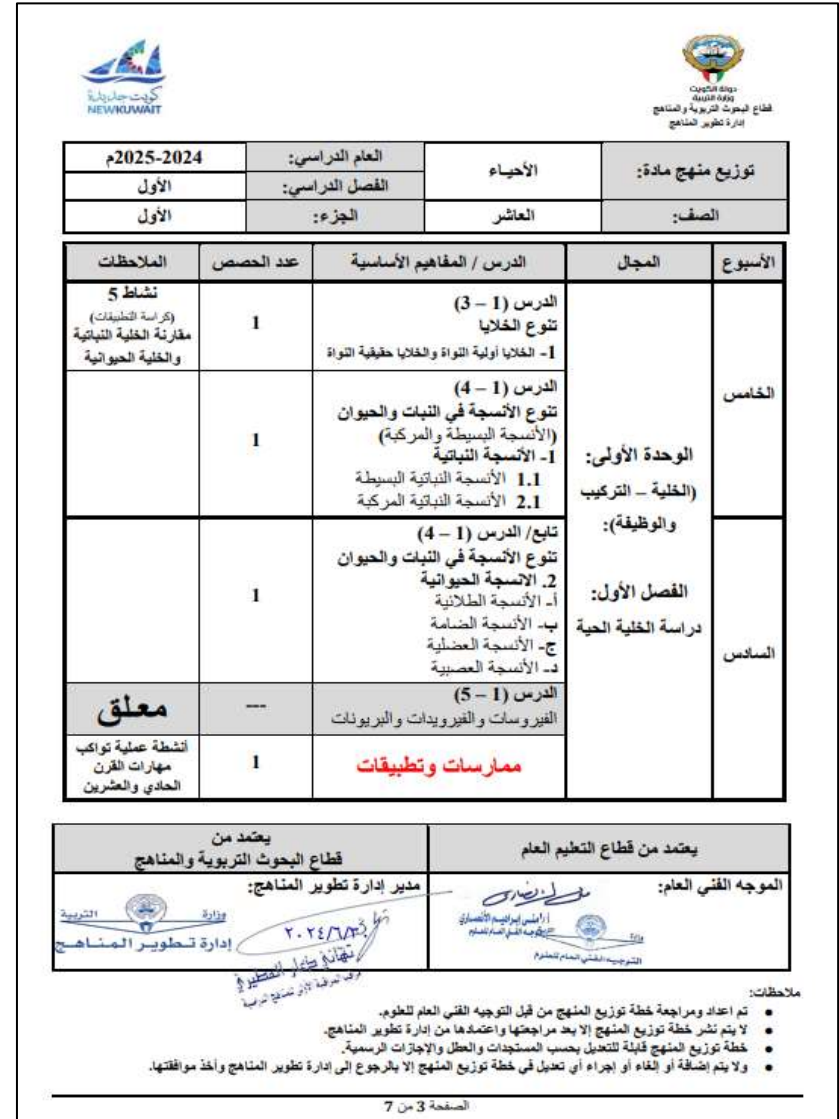 كويت جديدة
NEWKUWAIT
دولة الكويت
وزارة التربية
قطاع البحوث التربوية والمناهج
إدارة تطوير المناهج
توزيع منهج مادة:
الأحياء
العام الدراسي:
2024-2025م
الفصل الدراسي:
الأول
الصف:
العاشر
الجزء:
الأول
الأسبوع
المجال
الدرس / المفاهيم الأساسية
عدد الحصص
الملاحظات
الخامس
الوحدة الأولى:
(الخلية – التركيب
والوظيفة):
الفصل الأول:
دراسة الخلية الحية
الدرس (1 – 3)
تنوع الخلايا
1- الخلايا أولية النواة والخلايا حقيقية النواة
1
نشاط 5
(كراسة التطبيقات)
مقارنة الخلية النباتية
والخلية الحيوانية
الدرس (1 – 4)
تنوع الأنسجة في النبات والحيوان
(الأنسجة البسيطة والمركبة)
1- الأنسجة النباتية
1.1 الأنسجة النباتية البسيطة
2.1 الأنسجة النباتية المركبة
1
السادس
تابع/ الدرس (1 – 4)
تنوع الأنسجة في النبات والحيوان
2. الانسجة الحيوانية
أ- الأنسجة الطلائية
ب- الأنسجة الضامة
ج- الأنسجة العضلية
د- الأنسجة العصبية
1
الدرس (1 – 5)
الفيروسات والفيرويدات والبريونات
---
معلق
ممارسات وتطبيقات
1
أنشطة عملية تواكب
مهارات القرن
الحادي والعشرين
يعتمد من قطاع التعليم العام
يعتمد من
قطاع البحوث التربوية والمناهج
الموجه الفني العام:
مدير إدارة تطوير المناهج:
وزارة
التربية
إدارة تطوير المناهج
وزارة
ملاحظات:
● تم اعداد ومراجعة خطة توزيع المنهج من قبل التوجيه الفني العام للعلوم.
● لا يتم نشر خطة توزيع المنهج إلا بعد مراجعتها واعتمادها من إدارة تطوير المناهج.
● خطة توزيع المنهج قابلة للتعديل بحسب المستجدات والعطل والإجازات الرسمية.
● ولا يتم إضافة أو إلغاء أو إجراء أي تعديل في خطة توزيع المنهج إلا بالرجوع إلى إدارة تطوير المناهج وأخذ موافقتها.
الصفحة 3 من 7